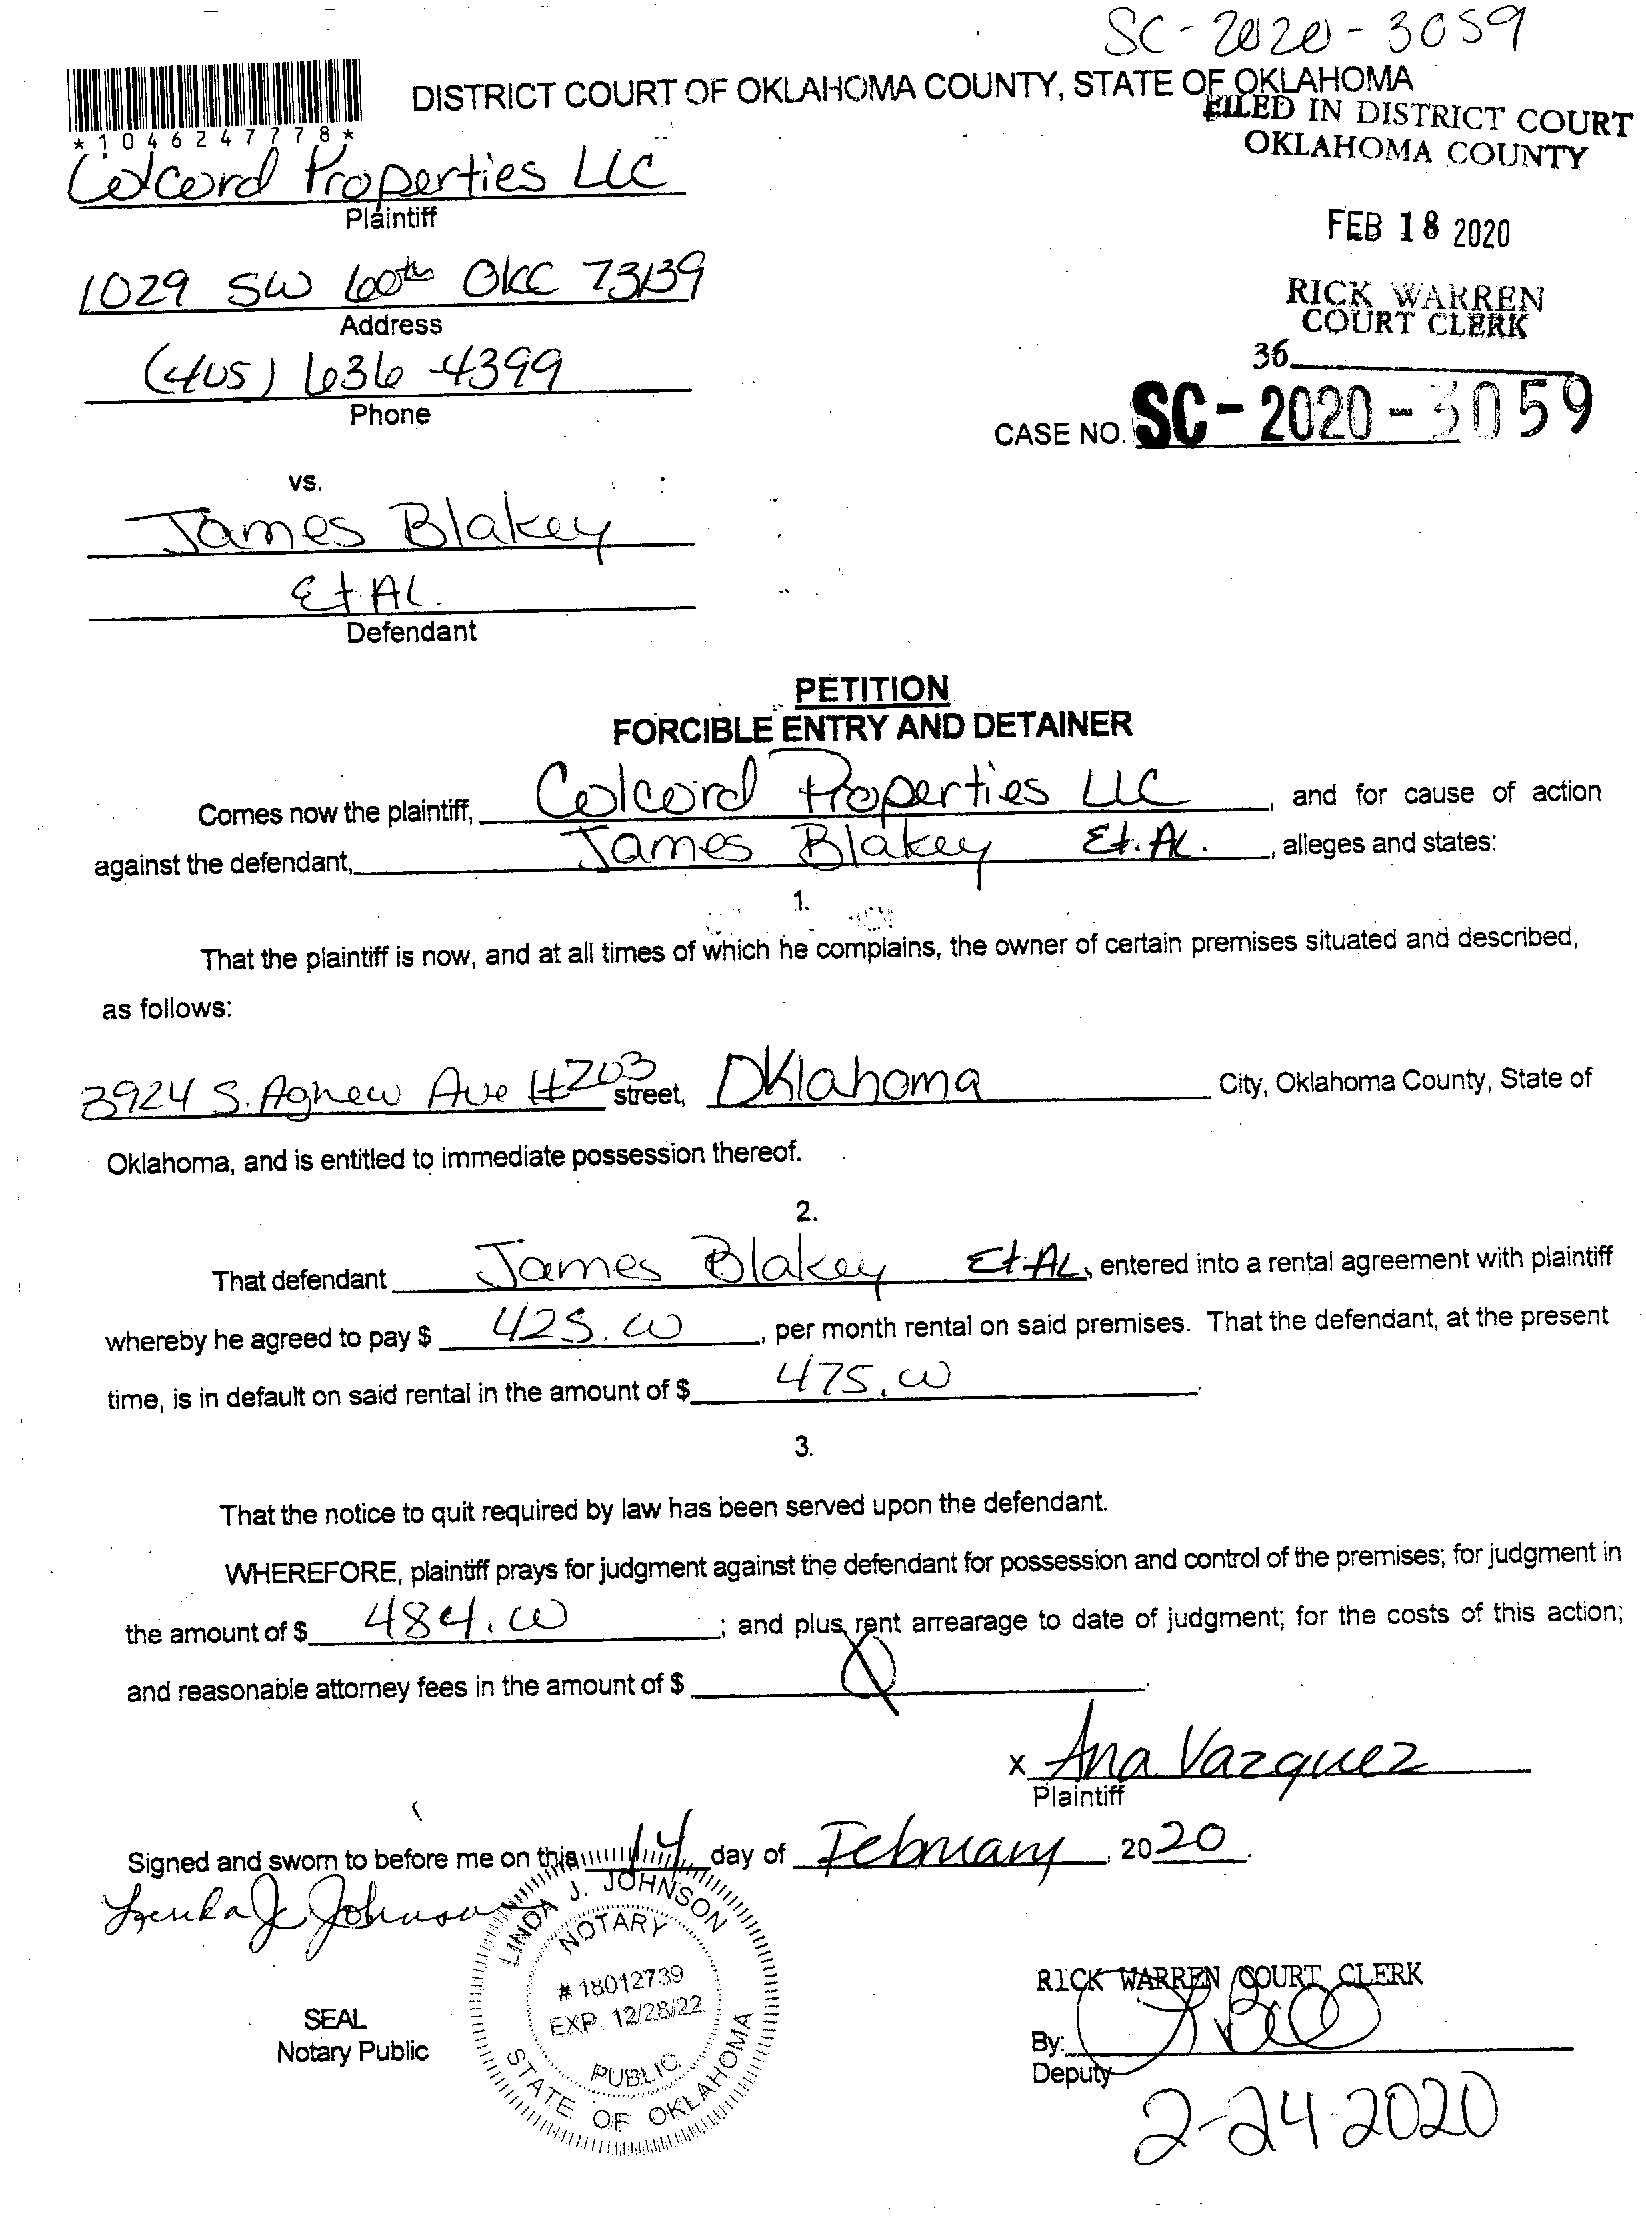 SC-2020-3059
DISTRICT COURT OF OKLAHOMA COUNTY, STATE OF OKLAHOMA
FILED IN DISTRICT COURT
OKLAHOMA COUNTY
*1046247778*
Colcord Properties LLC
Plaintiff
FEB 18 2020
1029 SW 60th OKC 73139
Address
RICK WARREN
COURT CLERK
(405) 636-4399
Phone
36
CASE NO. SC-2020-3059
vs.
James Blakey
Et AL.
Defendant
PETITION
FORCIBLE ENTRY AND DETAINER
Comes now the plaintiff, Colcord Properties LLC, and for cause of action
against the defendant, James Blakey Et. AL., alleges and states:
1.
That the plaintiff is now, and at all times of which he complains, the owner of certain premises situated and described,
as follows:
3924 S. Agnew Ave #203 street, Oklahoma City, Oklahoma County, State of
Oklahoma, and is entitled to immediate possession thereof.
2.
That defendant James Blakey Et AL, entered into a rental agreement with plaintiff
whereby he agreed to pay $ 425.00, per month rental on said premises. That the defendant, at the present
time, is in default on said rental in the amount of $ 475.00.
3.
That the notice to quit required by law has been served upon the defendant.
WHEREFORE, plaintiff prays for judgment against the defendant for possession and control of the premises; for judgment in
the amount of $ 484.00; and plus rent arrearage to date of judgment; for the costs of this action;
and reasonable attorney fees in the amount of $
x Ana Vazquez
Plaintiff
Signed and sworn to before me on this 14 day of February, 2020.
Linda J Johnson
LINDA J. JOHNSON
NOTARY
# 18012739
EXP. 12/28/22
PUBLIC
STATE OF OKLAHOMA
SEAL
Notary Public
RICK WARREN COURT CLERK
By:
Deputy
2-24-2020